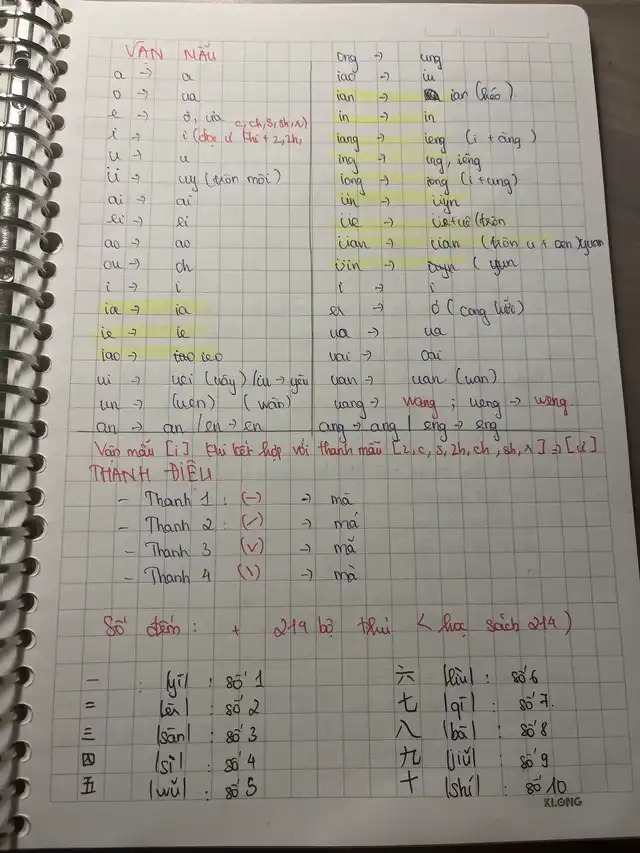 VẬN MẪU
a → a
o → ua
e → ơ, ưa
i → i (đọc ư khi + z, zh, c, ch, s, sh, r)
u → u
ü → uy (tròn môi)
ai → ai
ei → ei
ao → ao
ou →
i → i
ia → ia
ie → ie
iao → ieo
ui → uei (uây) / iu → yêu
un → (uen) (uân)
an → an / en → en
ong → ung
iao → iu
ian → ian (kéo)
in → in
iang → ieng (i + ang)
ing → ing, iêng
iong → iong (i + ung)
üin → uyn
üe → üe + uê (tròn
üan → üan (tròn u + oen
üin → (yun
i → i
er → ơ (cong lưỡi)
ua → ua
uai → oai
uan → uan (oan)
uang → wang ; ueng → weng.
ang → ang / eng → eng
Vận mẫu [i] khi kết hợp với thanh mẫu [z, c, s, zh, ch, sh, r] → [ư]
THANH ĐIỆU
- Thanh 1 : (−) → mā
- Thanh 2 : (/) → má
- Thanh 3 (v) → mǎ
- Thanh 4 (\) → mà
Số đếm: + 214 bộ thủ < học sách 214 )
一 : |yī| : số 1
二 |èr| : số 2
三 |sān| : số 3
四 |sì| : số 4
五 |wǔ| : số 5
六 |liù| : số 6
七 |qī| : số 7.
八 |bā| : số 8
九 |jiǔ| : số 9
十 |shí| : số 10
KLONG